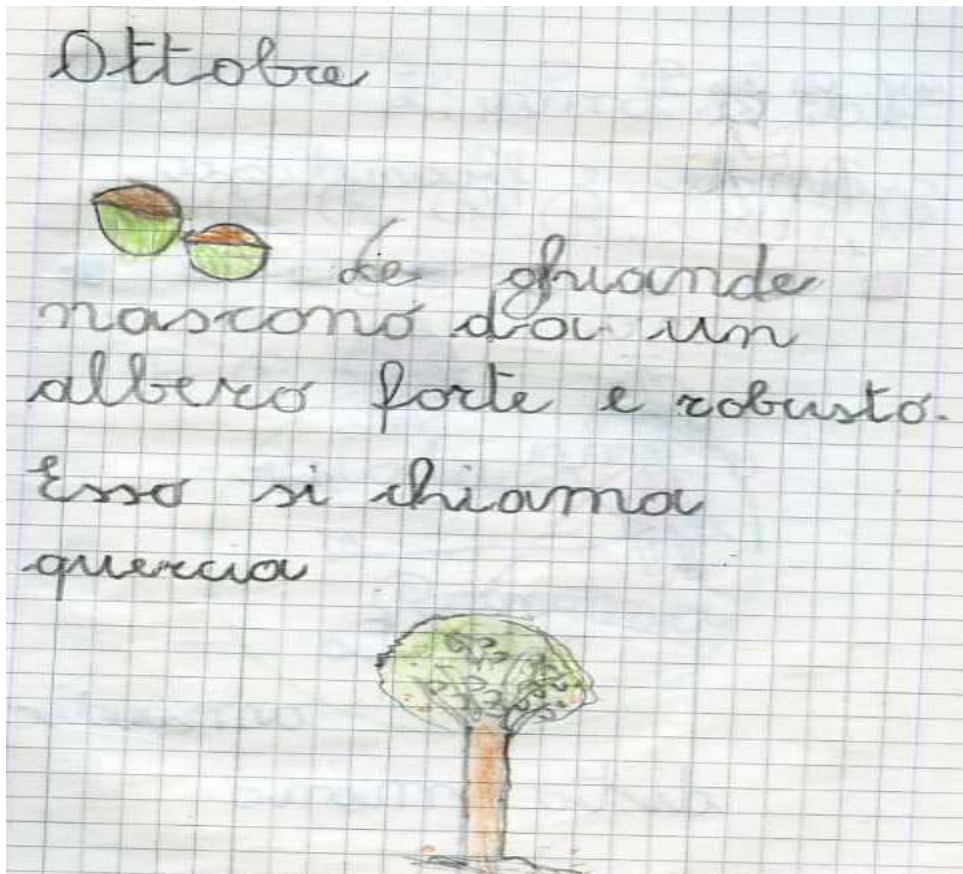 Ottobre
Le ghiande
nascono da un
albero forte e robusto.
Esso si chiama
quercia